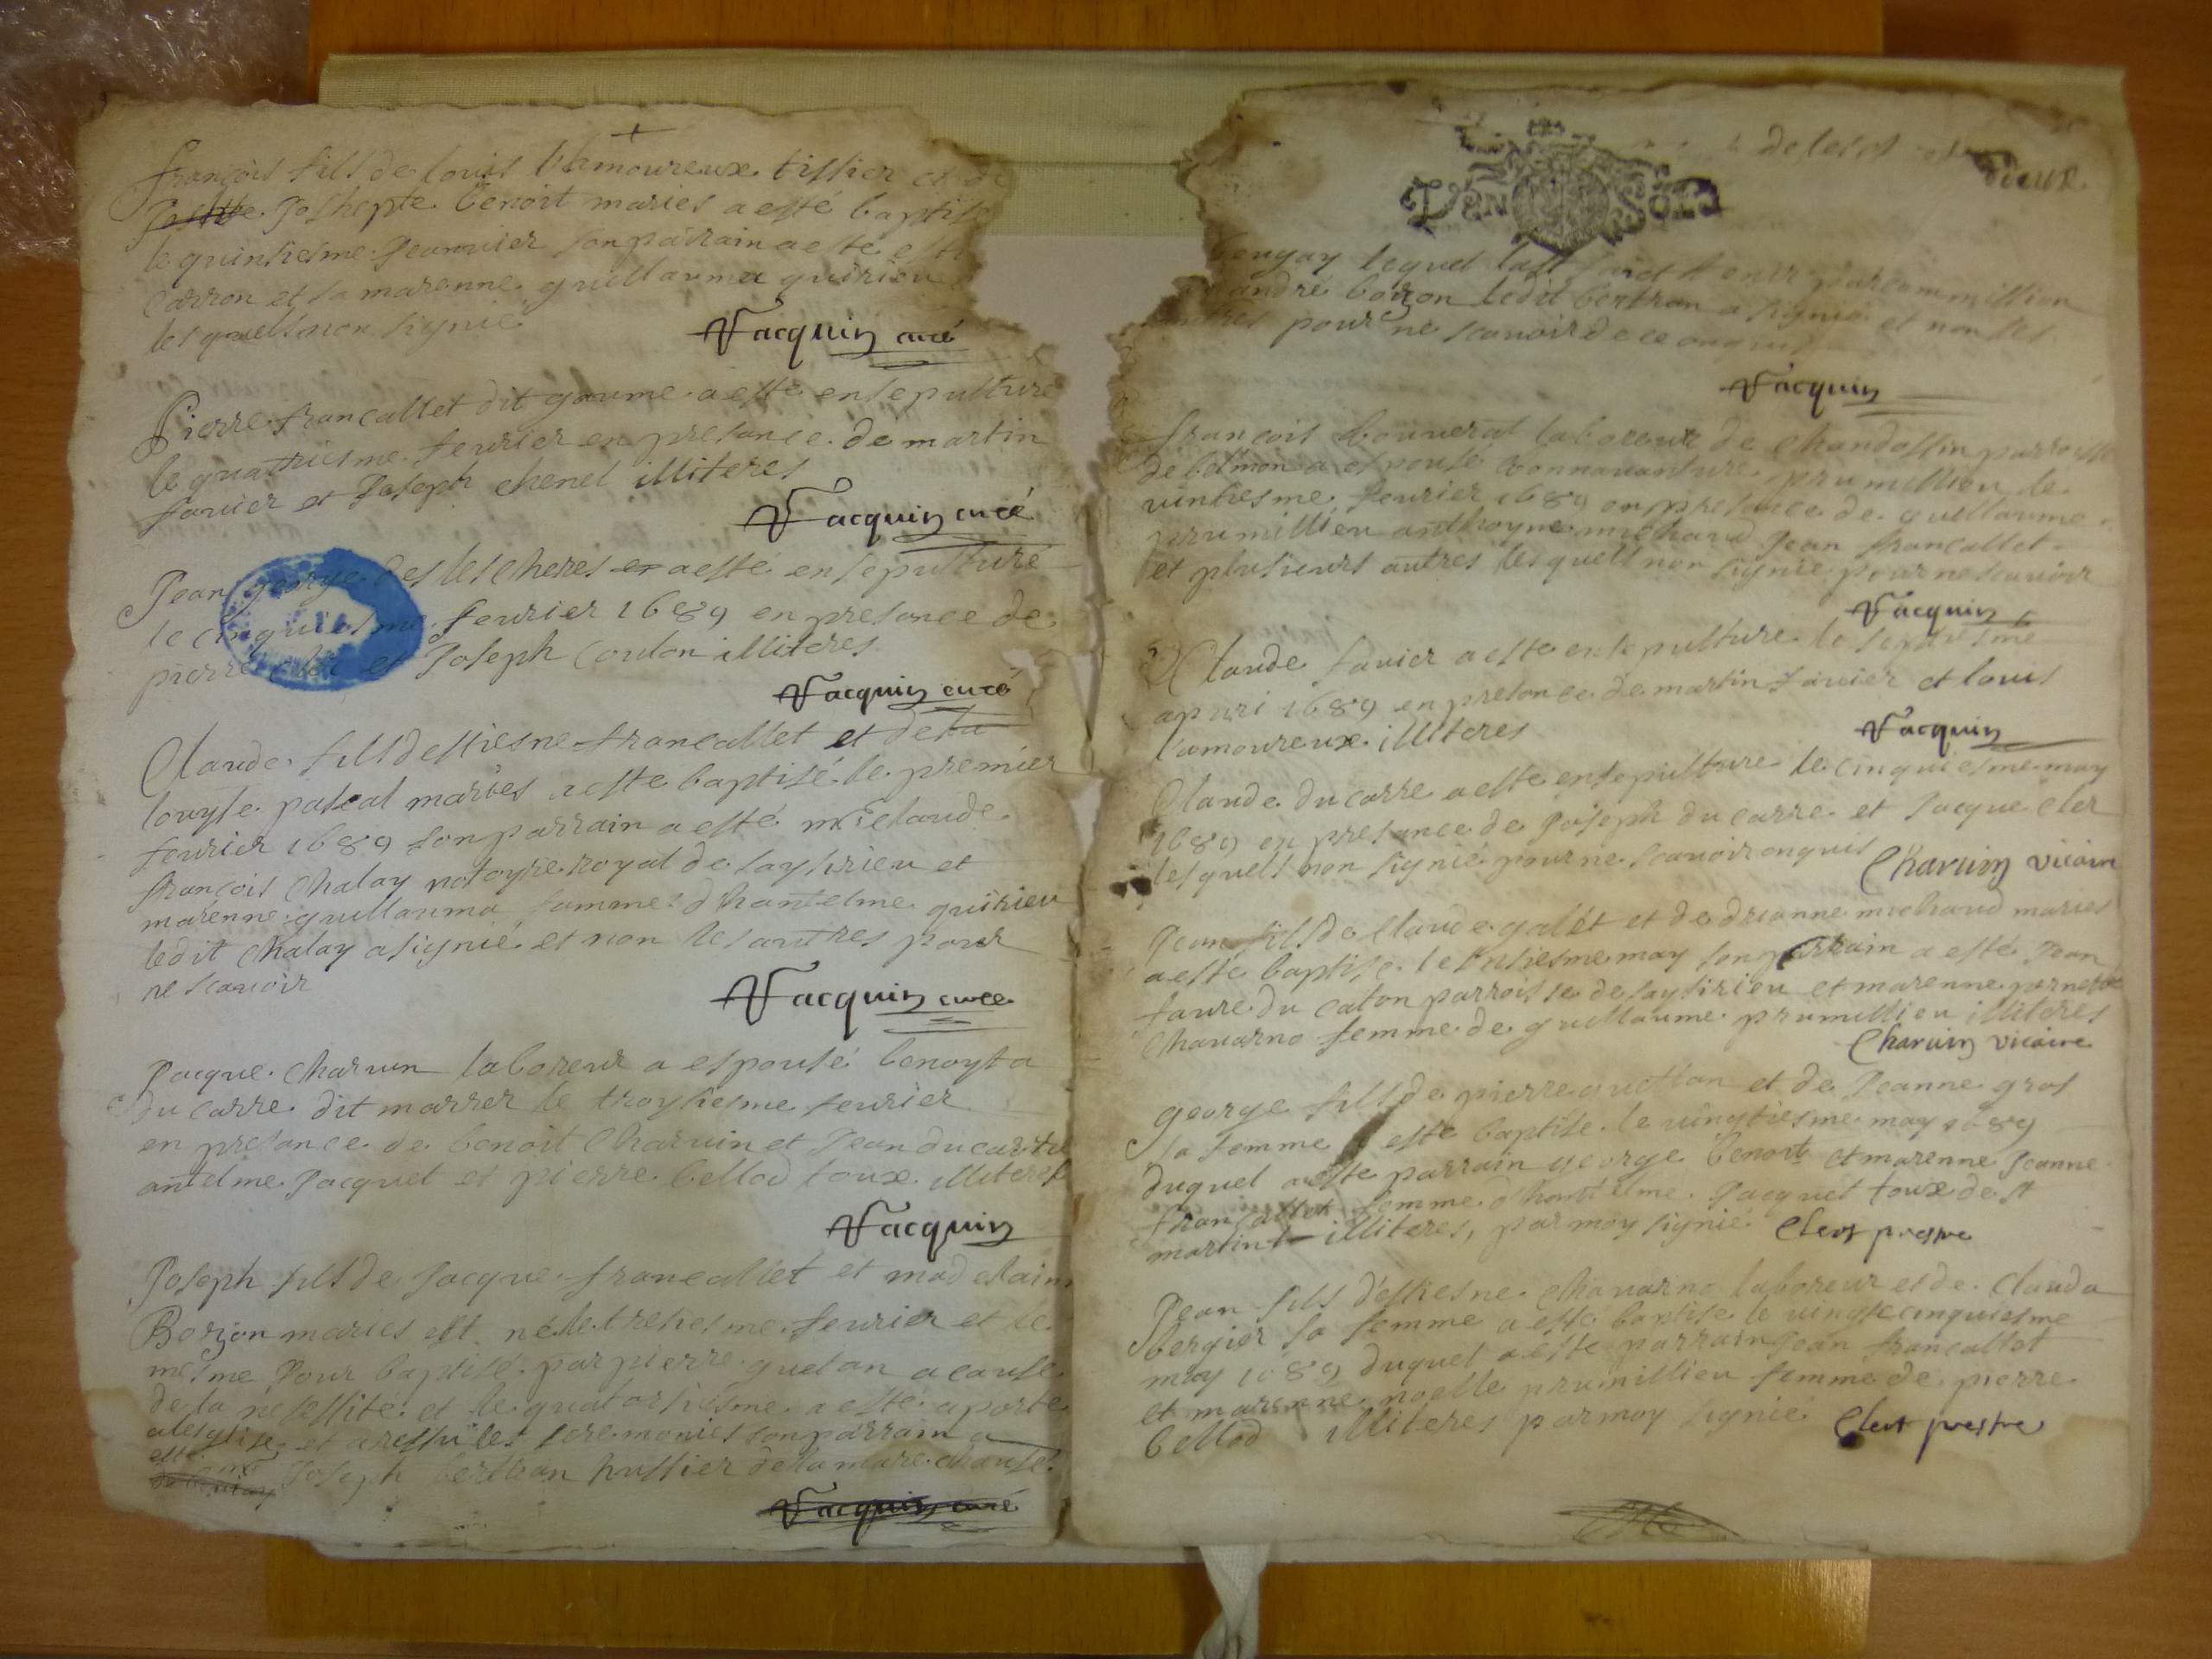 françois fils de louis l'amoureux tissier et de
Joshepte benoit mariés a esté baptisé
le quinsiesme Jeanvier son parrain a esté
carron et sa marenne guillauma quirieu
lesquels non signié
Jacquin curé
Pierre francallet dit gaume a esté ensepulturé
le quatriesme feurier en presance de martin
fauier et Joseph chenel illiteres
Jacquin curé
Jean george des lescheres a esté ensepulturé
le cinquiesme feurier 1689 en presance de
pierre et Joseph coulon illiteres
Jacquin curé
Claude fils d'estiesne francallet et de la
louyse pascal mariés a esté baptisé le premier
feurier 1689 son parrain a esté mre claude
françois Chalay notoyre royal de saysirieu et
marenne guillauma famme d'hantelme quirieu
ledit Chalay a signié et non les autres pour
ne scauoir
Jacquin curé
Jacque Charuin laboreur a espousé benoyta
du carre dit marrer le troysiesme feurier
en presance de benoit Charuin et Jean ducarre
antelme Jacquet et pierre bellod toux illiteres
Jacquin
Joseph fils de Jacque francallet et madelaine
Borzon mariés est né le tresiesme feurier et le
mesme Jour baptisé par pierre guetan a cause
de la nesessité et le quatorsiesme a esté aporté
a lesglise et a ressu les seremonies son parrain a
esté Joseph bertran hussier de la mare
Jacquin curé
de les
dieux
VEN SOLS
bougay lequel fait tenir par commission
andré borzon ledit bertran a signié et non les
autres pour ne scauoir de ce enquis
Jacquin
françois bouuerat laboreur de Chandossin parroisse
de belmon a espousé bonnauanture prumillieu le
vintiesme feurier 1689 en presance de guillaume
prumillieu anthoyne michaud Jean francallet
et plusieurs autres lesquels non signié pour ne scauoir
Jacquin
Claude fauier a esté ensepulturé le septiesme
apuril 1689 en presance de martin fauier et louis
l'amoureux illiteres
Jacquin
Claude du carre a esté ensepulturé le cinquiesme may
1689 en presance de Joseph du carre et Jacque cler
lesquels non signié pour ne scauoir enquis
Charuin vicaire
Jean fils de Claude galét et de drianne michaud mariés
a esté baptisé le may son parrain a esté Jean
faure du caton parroisse de saysirieu et marenne pernette
Chauarno femme de guillaume prumillieu illiteres
Charuin vicaire
george fils de pierre guettan et de Jeanne gros
sa femme a esté baptisé le vingtiesme may 1689
duquel a esté parrain george benoit et marenne Jeanne
francallet femme d'hantelme Jacquet toux de st
martin illiteres, par moy signié Clert prestre
Jean fils d'estiesne Chauarno laboreur et de Clauda
bergier sa femme a esté baptisé le vingte cinquiesme
may 1689 duquel a esté parrain Jean francallet
et marenne noelle prumillieu femme de pierre
bellod illiteres par moy signié Clert prestre